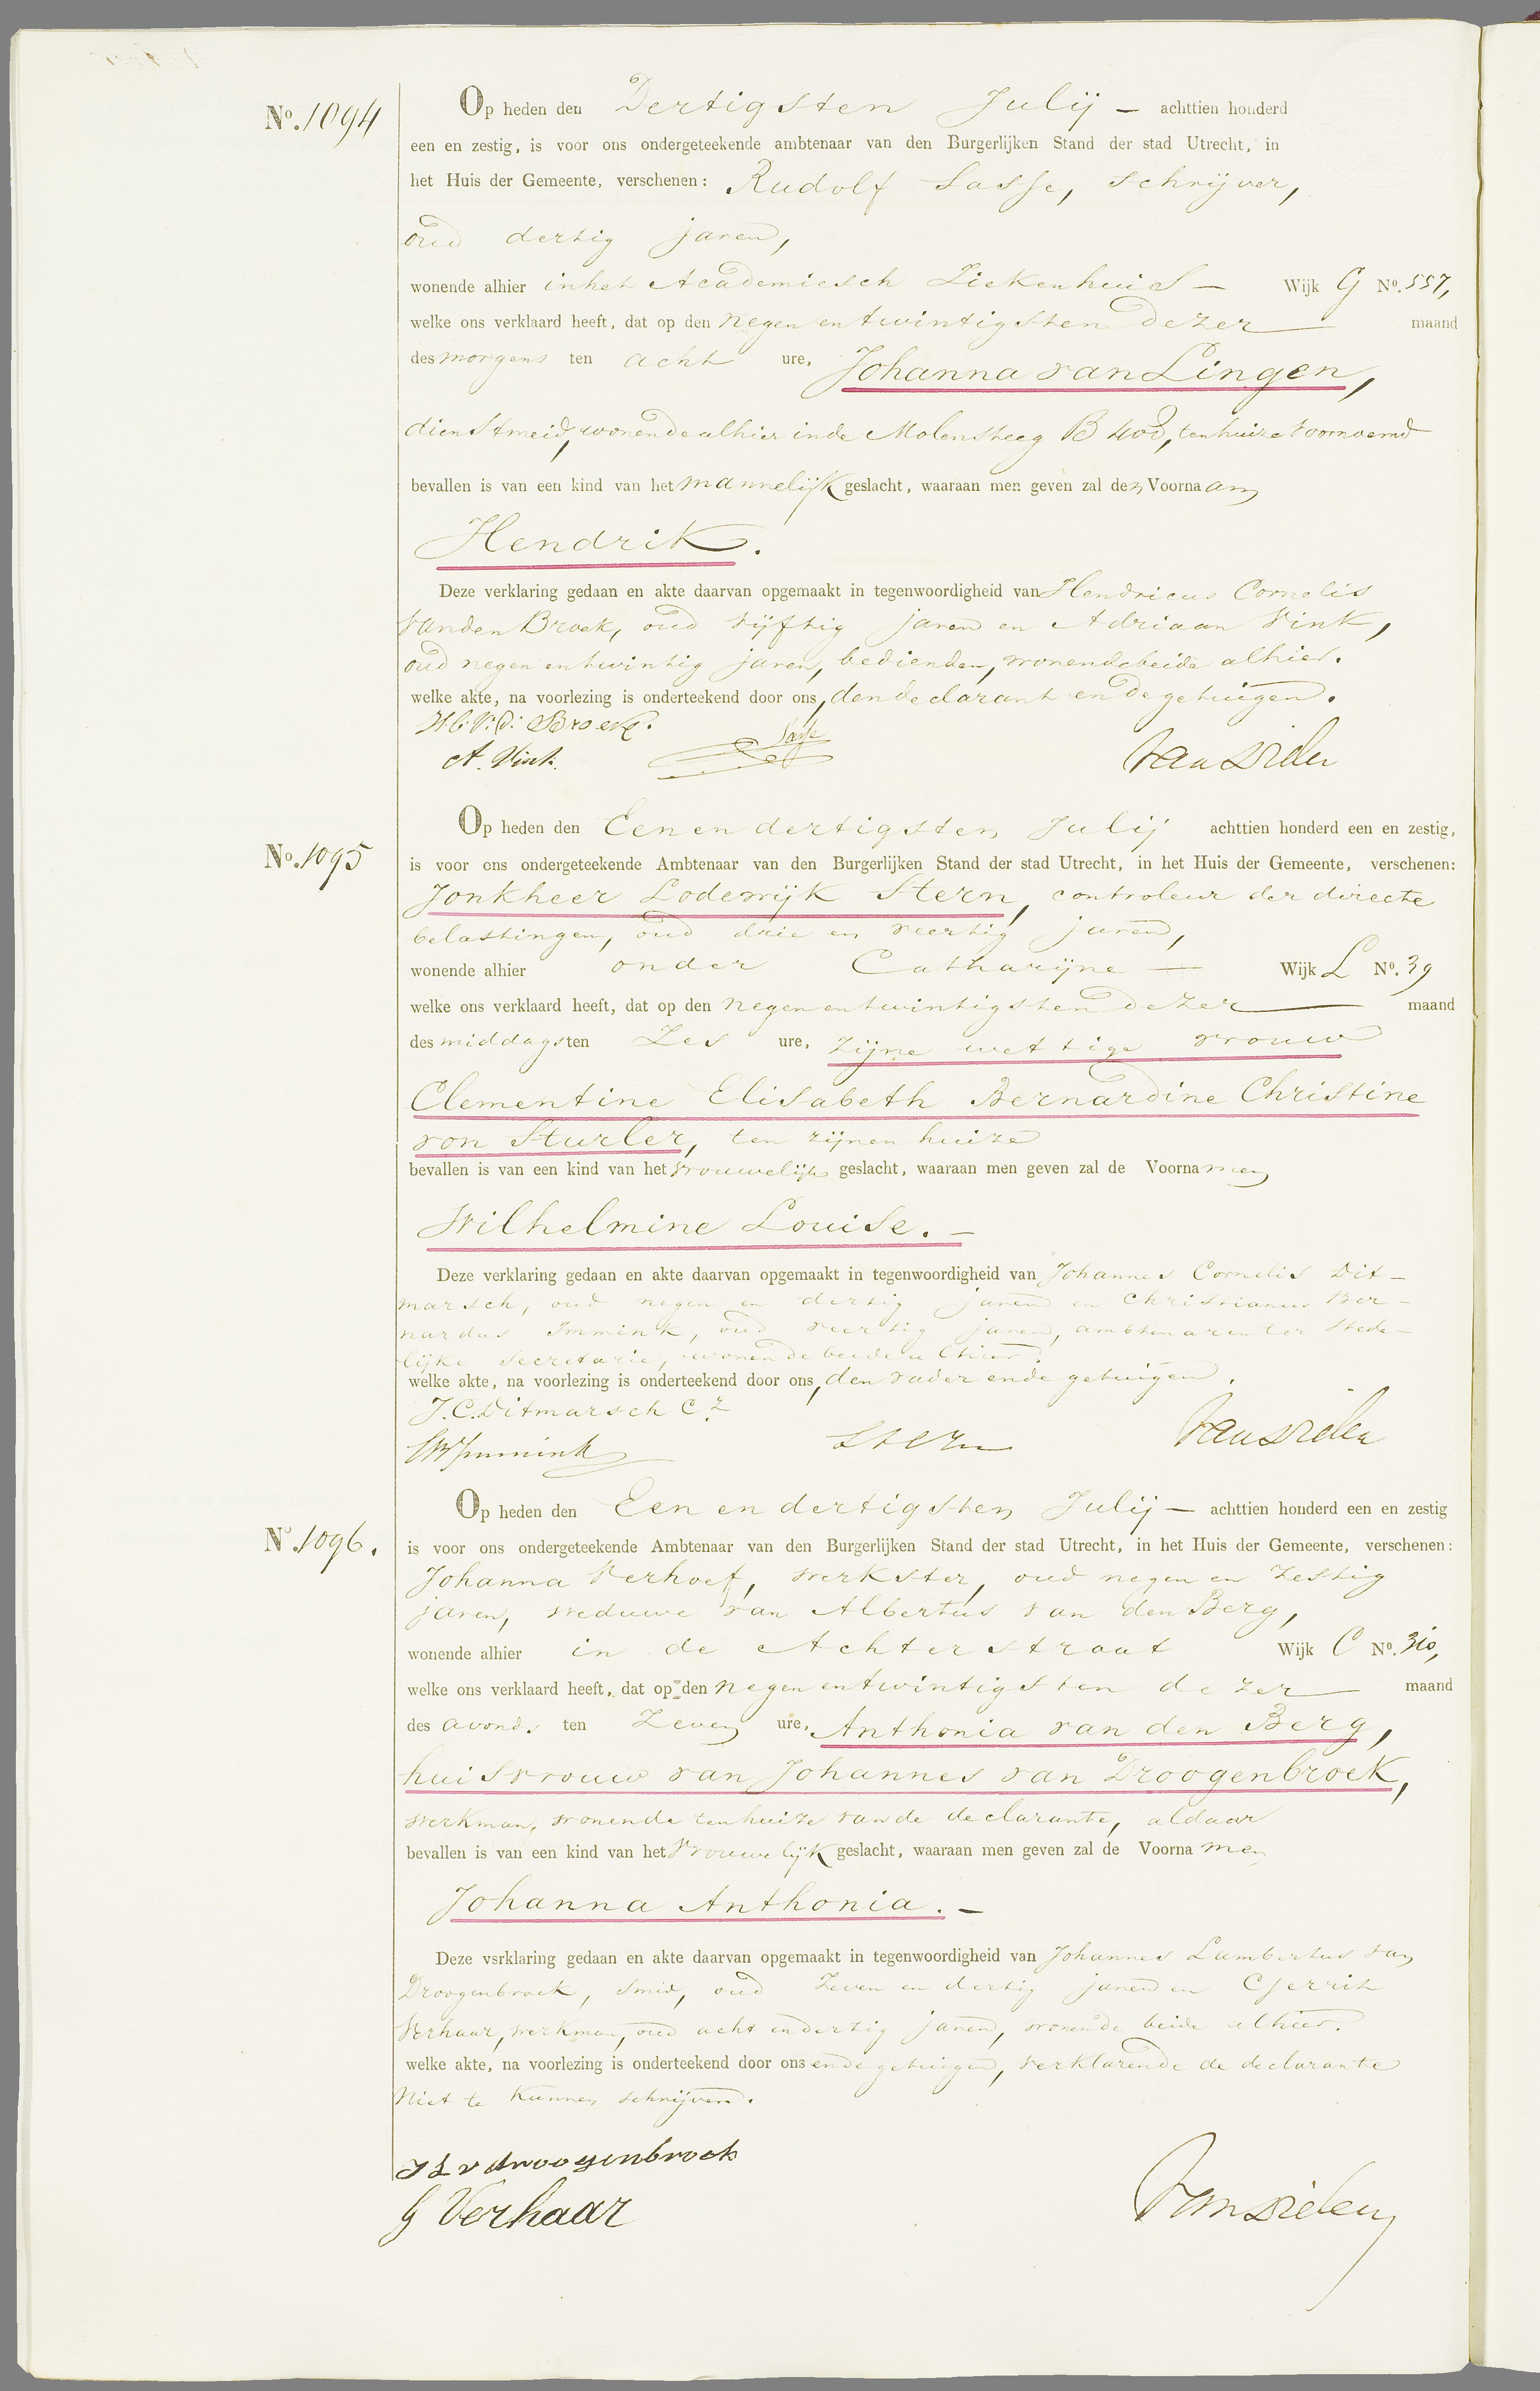 No. 1094
Op heden den Dertigsten Julij – achttien honderd
een en zestig, is voor ons ondergeteekende ambtenaar van den Burgerlijken Stand der stad Utrecht, in
het Huis der Gemeente, verschenen: Rudolf Sasse, schrijver,
oud dertig jaren,
wonende alhier in het Academiesch Ziekenhuis – Wijk G No. 557,
welke ons verklaard heeft, dat op den negen en twintigsten dezer maand
des morgens ten acht ure, Johanna van Lingen,
dienstmeid, wonende alhier in de Molensteeg B 400, ten huize voornoemd
bevallen is van een kind van het mannelijk geslacht, waaraan men geven zal den Voornaam
Hendrik.
Deze verklaring gedaan en akte daarvan opgemaakt in tegenwoordigheid van Hendricus Cornelis
van den Broek, oud vijftig jaren en Adriaan Vink,
oud negen en twintig jaren, bedienden, wonende beide alhier.
welke akte, na voorlezing is onderteekend door ons, den declarant en de getuigen.
H. C. v. d. Broek.
A. Vink. Sasse
No. 1095
Op heden den Een en dertigsten Julij achttien honderd een en zestig,
is voor ons ondergeteekende Ambtenaar van den Burgerlijken Stand der stad Utrecht, in het Huis der Gemeente, verschenen:
Jonkheer Lodewijk Stern, controleur der directe
belastingen, oud drie en veertig jaren,
wonende alhier onder Catharijne – Wijk L No. 39
welke ons verklaard heeft, dat op den negen en twintigsten dezer maand
des middags ten Zes ure, zijne wettige vrouw
Clementine Elisabeth Bernardine Christine
von Sturler, ten zijnen huize
bevallen is van een kind van het vrouwelijk geslacht, waaraan men geven zal de Voornamen
Wilhelmine Louise. –
Deze verklaring gedaan en akte daarvan opgemaakt in tegenwoordigheid van Johannes Cornelis Dit-
marsch, oud negen en dertig jaren en Christianus Ber-
nardus Immink, oud veertig jaren, ambtenaren ter Stede-
lijke Secretarie, wonende beide alhier.
welke akte, na voorlezing is onderteekend door ons, den vader en de getuigen.
J. C. Ditmarsch Cz
CB Immink Stern
No. 1096.
Op heden den Een en dertigsten Julij – achttien honderd een en zestig
is voor ons ondergeteekende Ambtenaar van den Burgerlijken Stand der stad Utrecht, in het Huis der Gemeente, verschenen:
Johanna Verhoef, werkster, oud negen en zestig
jaren, weduwe van Albertus van den Berg,
wonende alhier in de Achterstraat Wijk C No. 310,
welke ons verklaard heeft, dat op den negen en twintigsten dezer maand
des avonds ten Zeven ure, Anthonia van den Berg,
huisvrouw van Johannes van Droogenbroek,
werkman, wonende ten huize van de declarante, aldaar
bevallen is van een kind van het vrouwelijk geslacht, waaraan men geven zal de Voornamen
Johanna Anthonia. –
Deze vsrklaring gedaan en akte daarvan opgemaakt in tegenwoordigheid van Johannes Lambertus van
Droogenbroek, smid, oud Zeven en dertig jaren en Gerrit
Verhaar, werkman, oud acht en dertig jaren, wonende beide alhier.
welke akte, na voorlezing is onderteekend door ons en de getuigen, verklarende de declarante
niet te kunnen schrijven.
J L v droogenbroek
G Verhaar